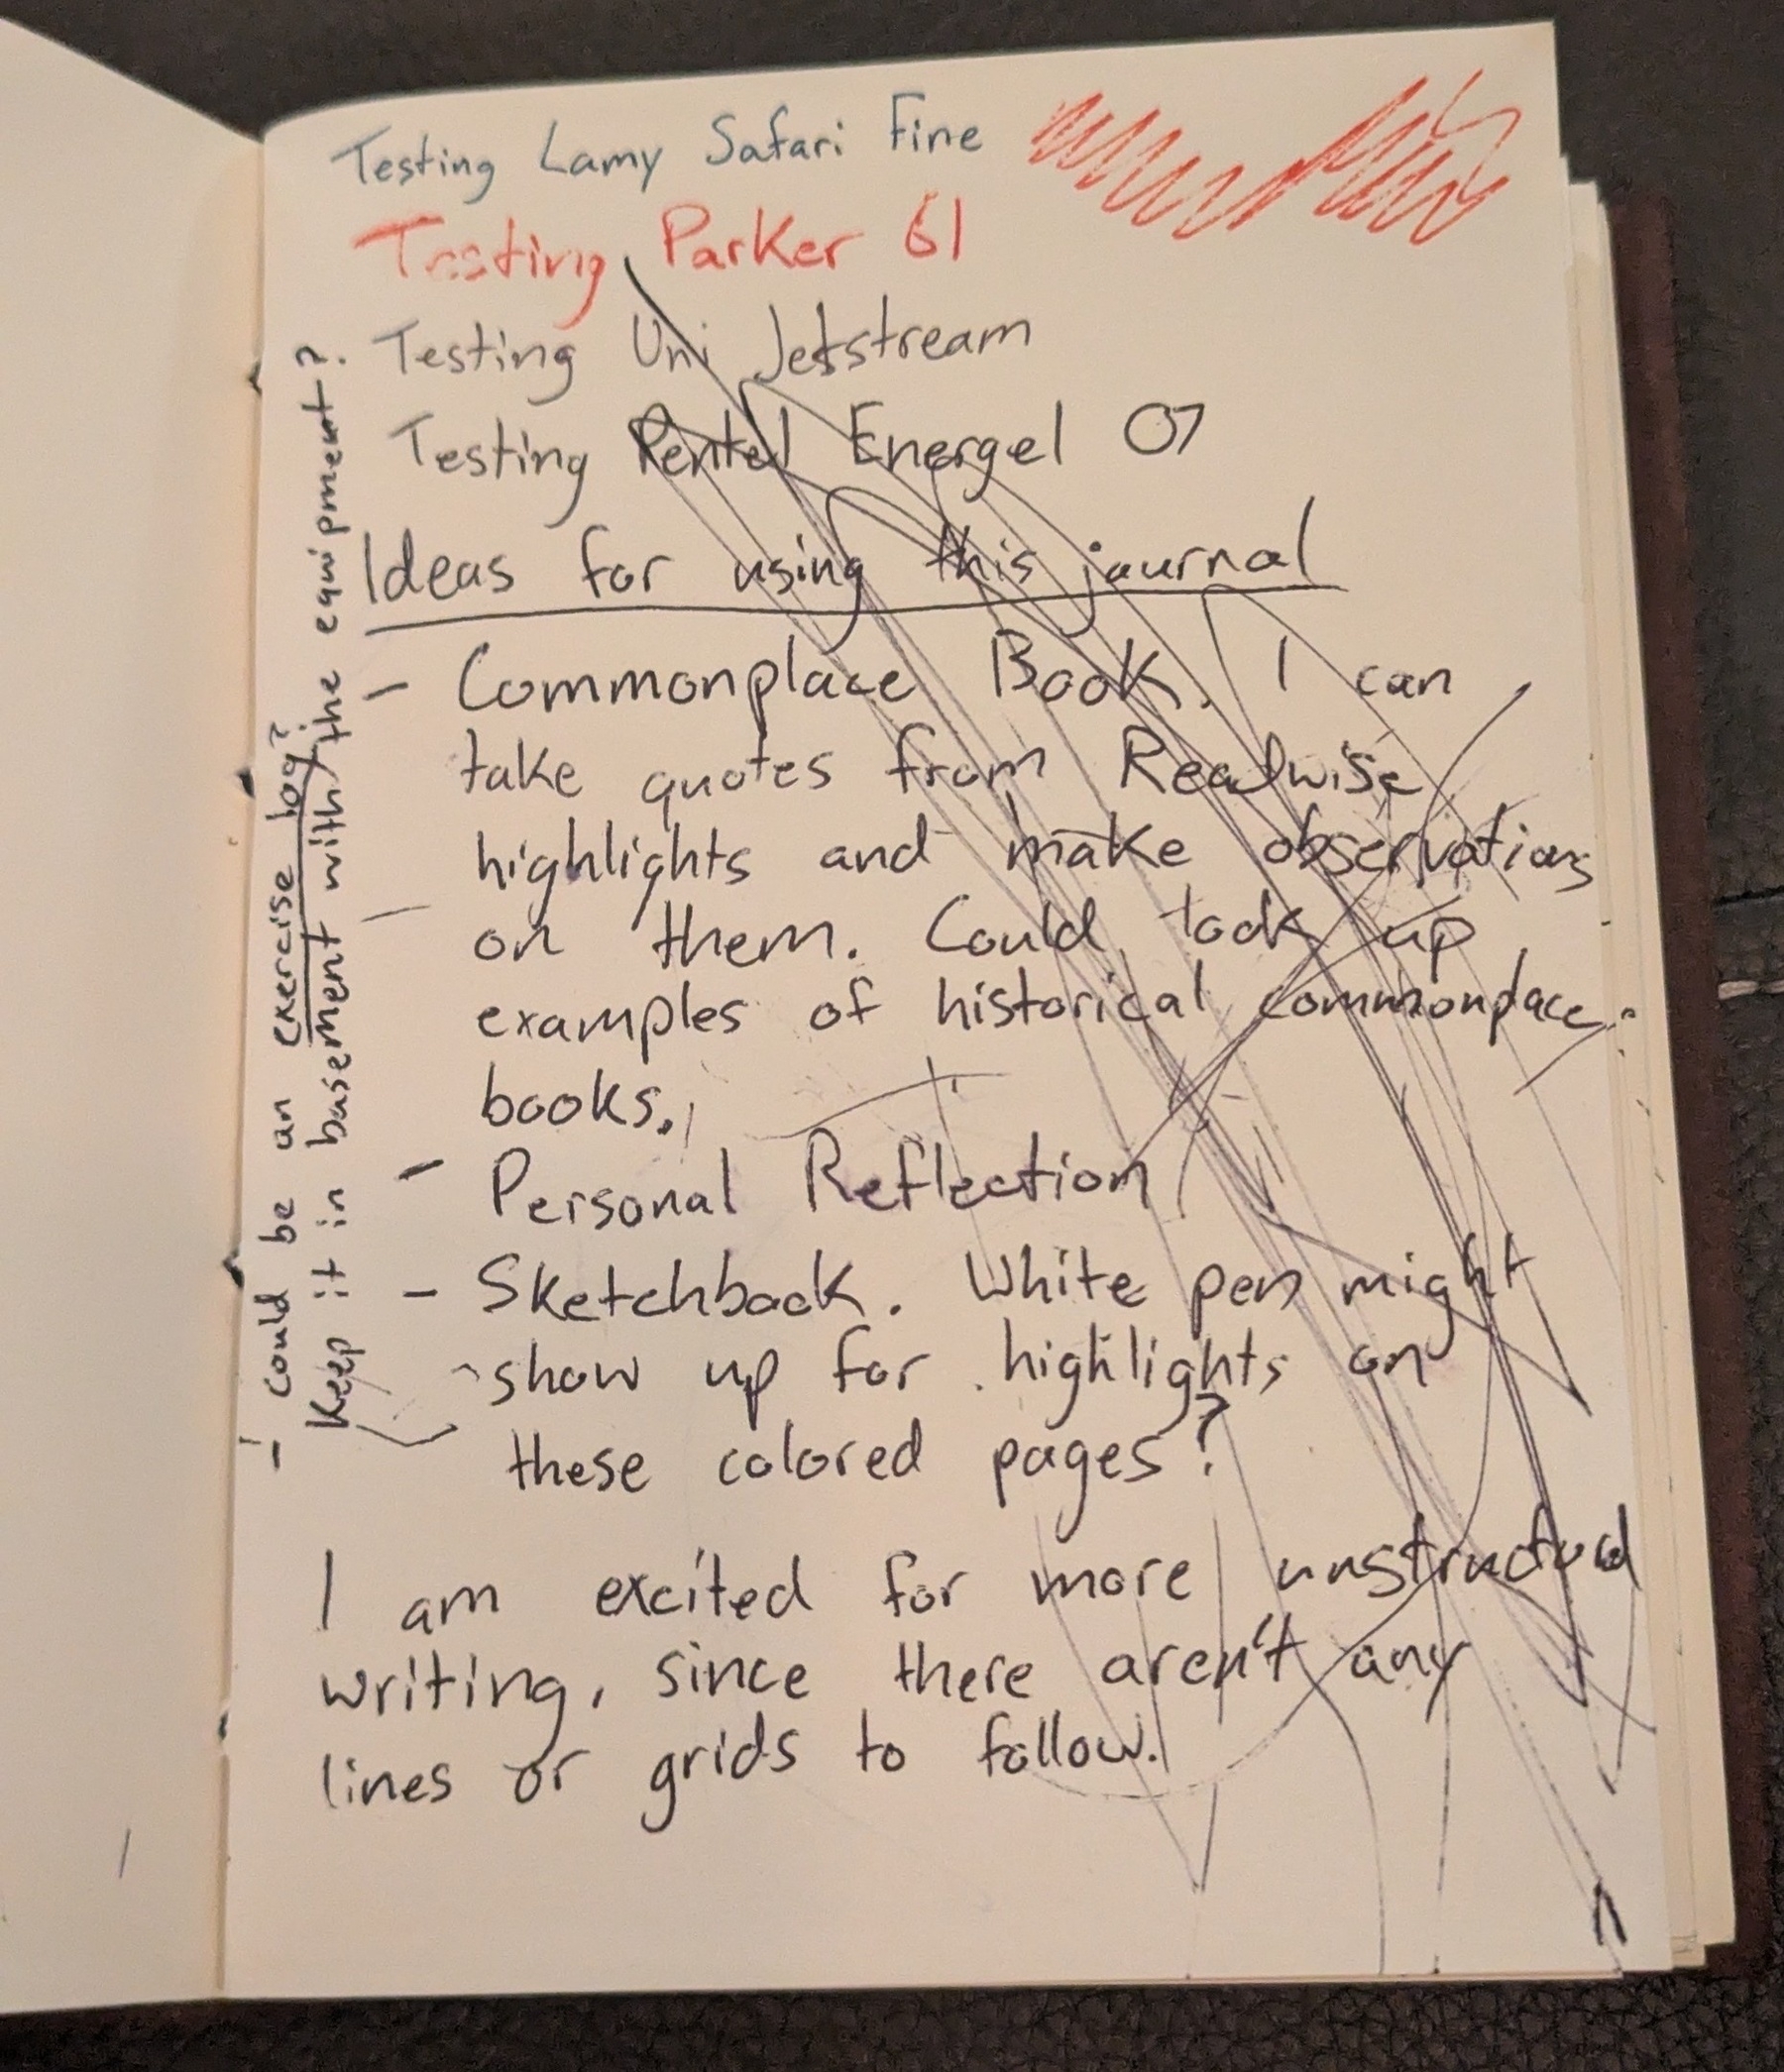 Testing Lamy Safari Fine
Testing Parker 61
Testing Uni Jetstream
Testing Pentel Energel 07
Ideas for using this journal
- Commonplace Book. I can
take quotes from Readwise
highlights and make observations
on them. Could look up
examples of historical commonplace
books.
- Personal Reflection
- Sketchbook. White pen might
show up for highlights on
these colored pages?
I am excited for more unstructured
writing, since there aren't any
lines or grids to follow.
- could be an exercise log?
Keep it in basement with the equipment?